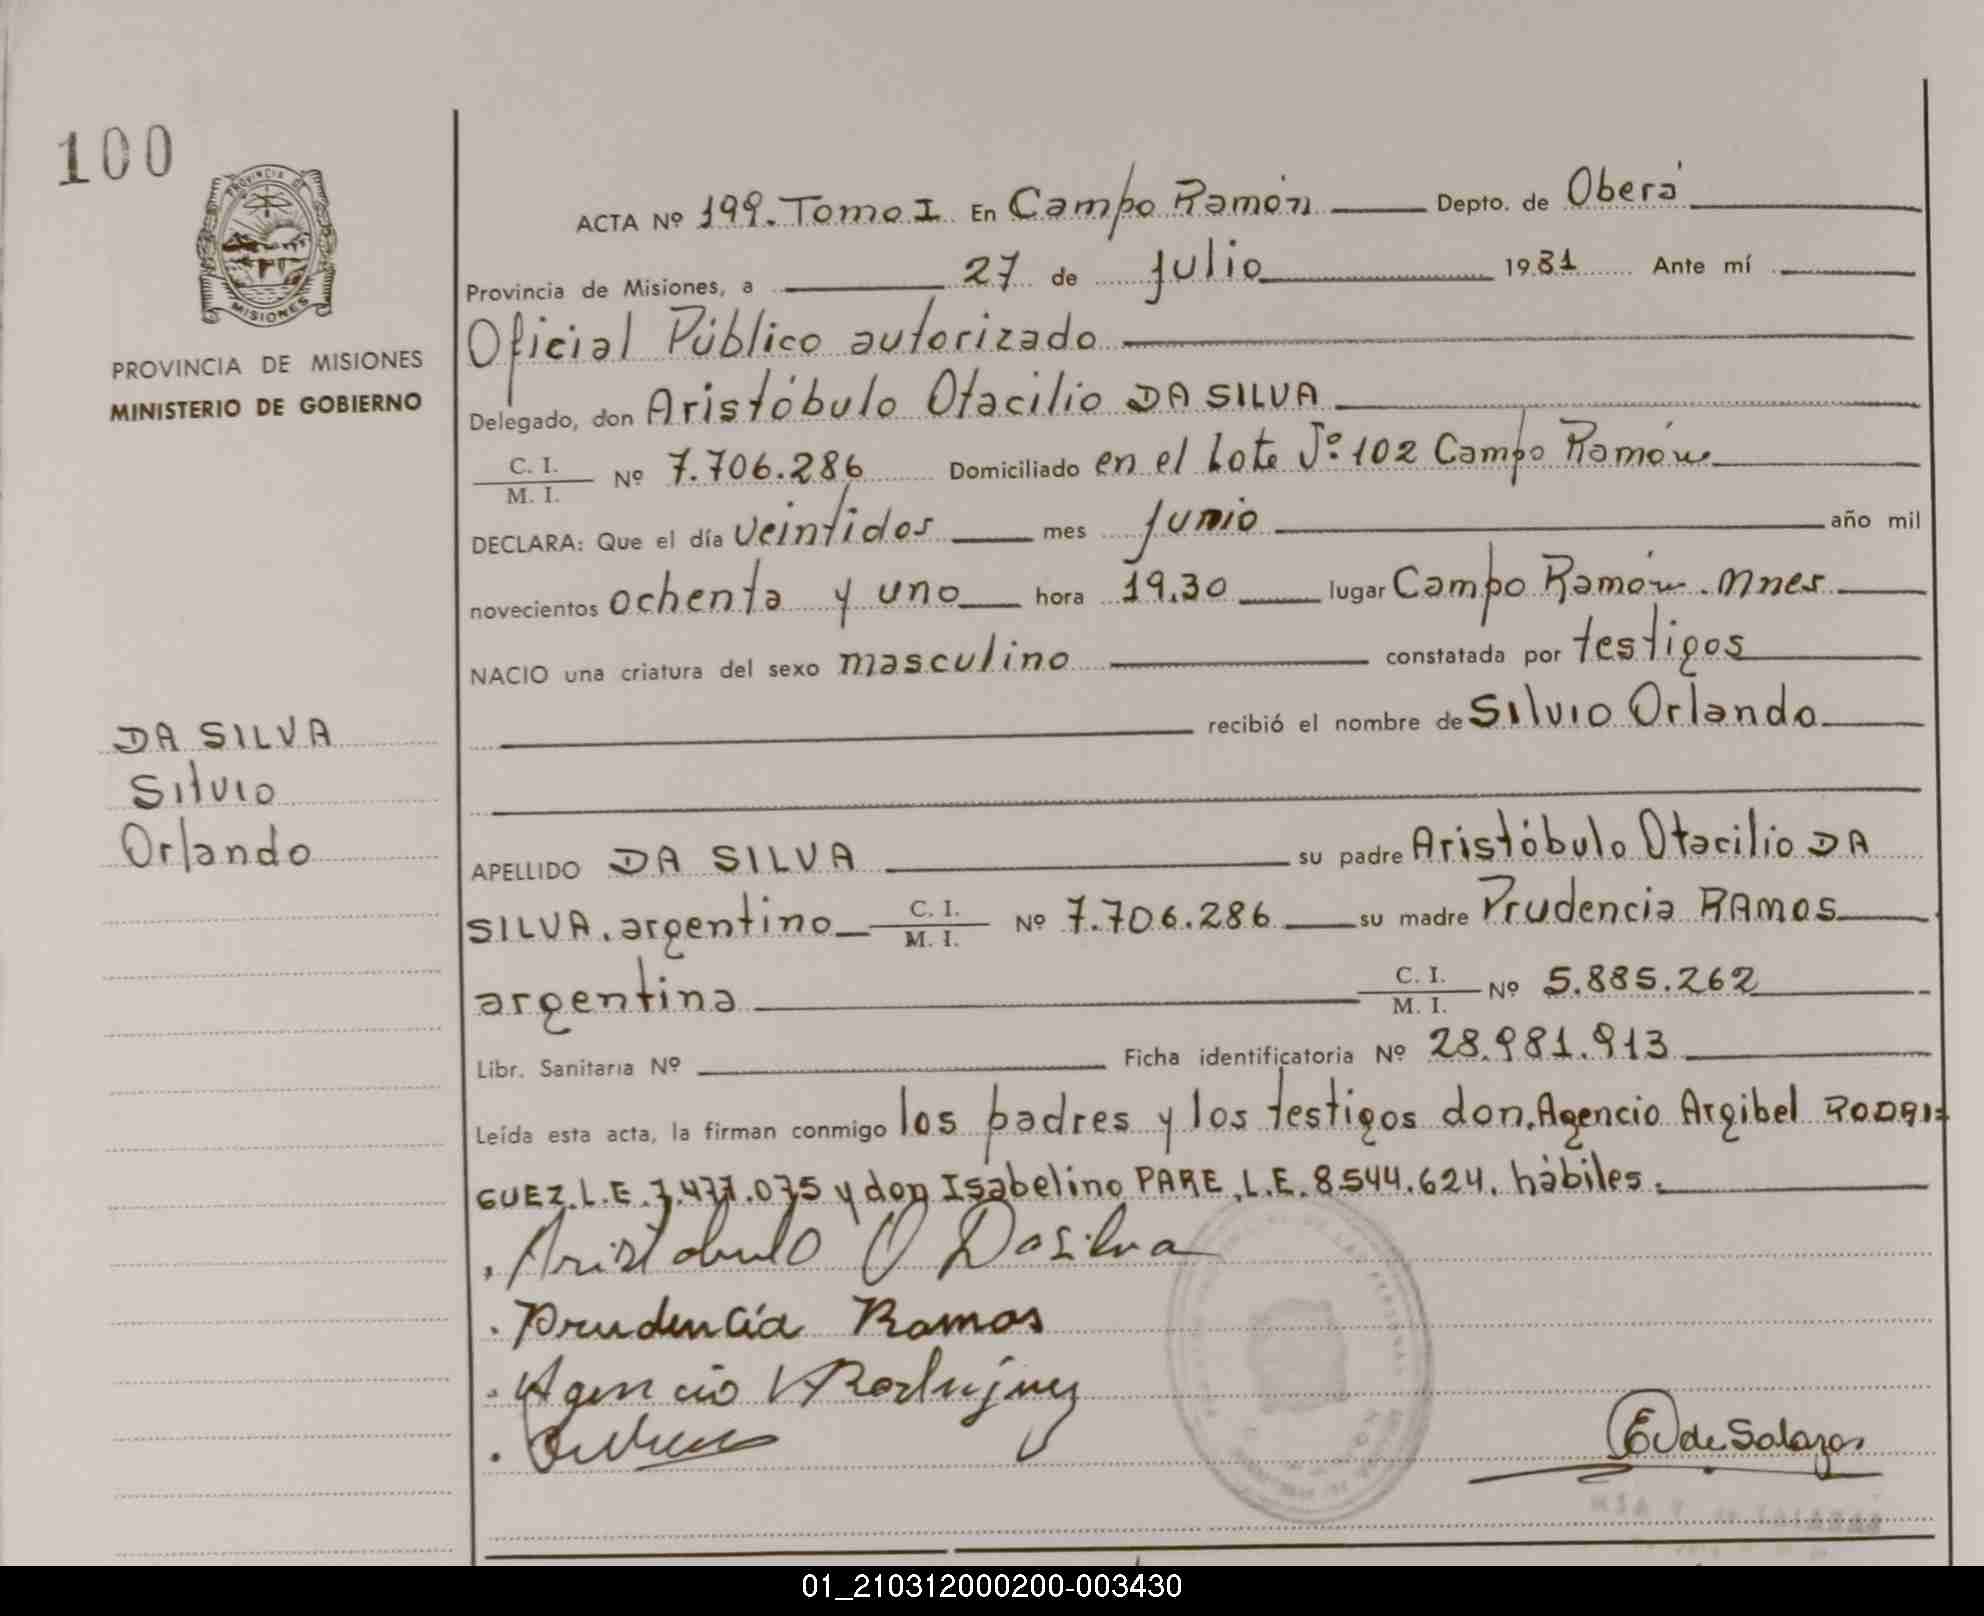 100
PROVINCIA DE
MISIONES
PROVINCIA DE MISIONES
MINISTERIO DE GOBIERNO
ACTA Nº 199. Tomo I En Campo Ramón Depto. de Oberá
Provincia de Misiones, a 27 de julio 1981 Ante mí
Oficial Público autorizado
Delegado, don Aristóbulo Otacilio DA SILVA
C. I.
M. I. Nº 7.706.286 Domiciliado en el Lote Nº 102 Campo Ramón
DECLARA: Que el día veintidos mes junio año mil
novecientos ochenta y uno hora 19.30 lugar Campo Ramón. Mnes
NACIO una criatura del sexo masculino constatada por testigos
recibió el nombre de Silvio Orlando
DA SILVA
Silvio
Orlando
APELLIDO DA SILVA su padre Aristóbulo Otacilio DA
SILVA. argentino C. I. M. I. Nº 7.706.286 su madre Prudencia RAMOS
argentina C. I. M. I. Nº 5.885.262
Libr. Sanitaria Nº Ficha identificatoria Nº 28.981.913
Leída esta acta, la firman conmigo los padres y los testigos don. Agencio Argibel RODRI=
GUEZ. L.E. 7.477.075 y don Isabelino PARE. L.E. 8.544.624. hábiles.
Aristobulo O Dasilva
Prudencia Ramos
Agencio A Rodriguez
E de Salazar
01_210312000200-003430